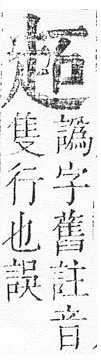 譌字舊註音
隻行也誤